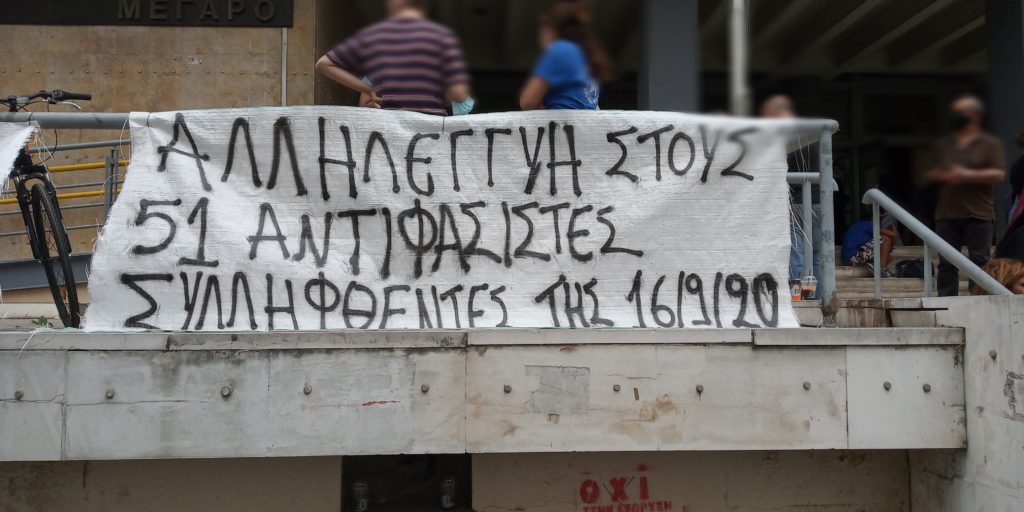 ΜΕΓΑΡΟ
ΑΛΛΗΛΕΓΓΥΗ ΣΤΟΥΣ
51 ΑΝΤΙΦΑΣΙΣΤΕΣ
ΣΥΛΛΗΦΘΕΝΤΕΣ ΤΗΣ 16/9/20
ΟΧΙ
ΣΤΗΝ ΕΞΟΡΥΞΗ